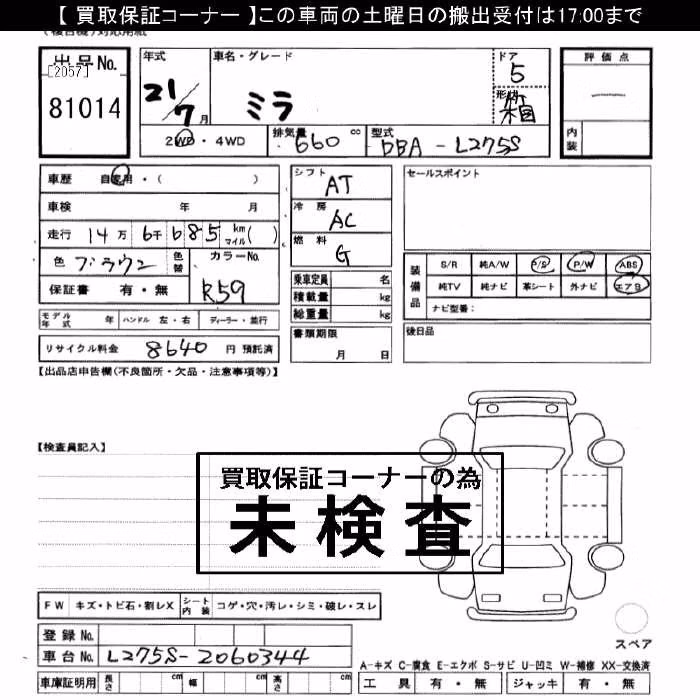 【 買取保証コーナー 】この車両の土曜日の搬出受付は17:00まで
出品No.
[2057]
81014
年式
21/7月
車名・グレード
ミラ
ドア
5
形状
箱
評価点
内装
2WD・4WD
排気量
660 cc
型式
DBA-L275S
車歴 自家用・( )
車検 年 月
走行 14万 6千 685 km マイル( )
色 ブラウン 色替
カラーNo.
R59
保証書 有・無
シフト
AT
冷房
AC
燃料
G
乗車定員 名
積載量 kg
総重量 kg
書類期限
月 日
セールスポイント
装備品
S/R 純A/W P/S P/W ABS
純TV 純ナビ 革シート 外ナビ エアB
ナビ型番：
後日品
モデル年式 年 ハンドル 左・右 ディーラー・並行
リサイクル料金 8640 円 預託済
【出品店申告欄(不良箇所・欠品・注意事項等)】
【検査員記入】
買取保証コーナーの為
未検査
FW キズ・トビ石・割レX シート内装 コゲ・穴・汚レ・シミ・破レ・スレ
登録No.
車台No. L275S-2060344
車庫証明用 長さ cm 幅 cm 高さ cm
スペア
A-キズ C-腐食 E-エクボ S-サビ U-凹ミ W-補修 XX-交換済
工具 有・無 ジャッキ 有・無